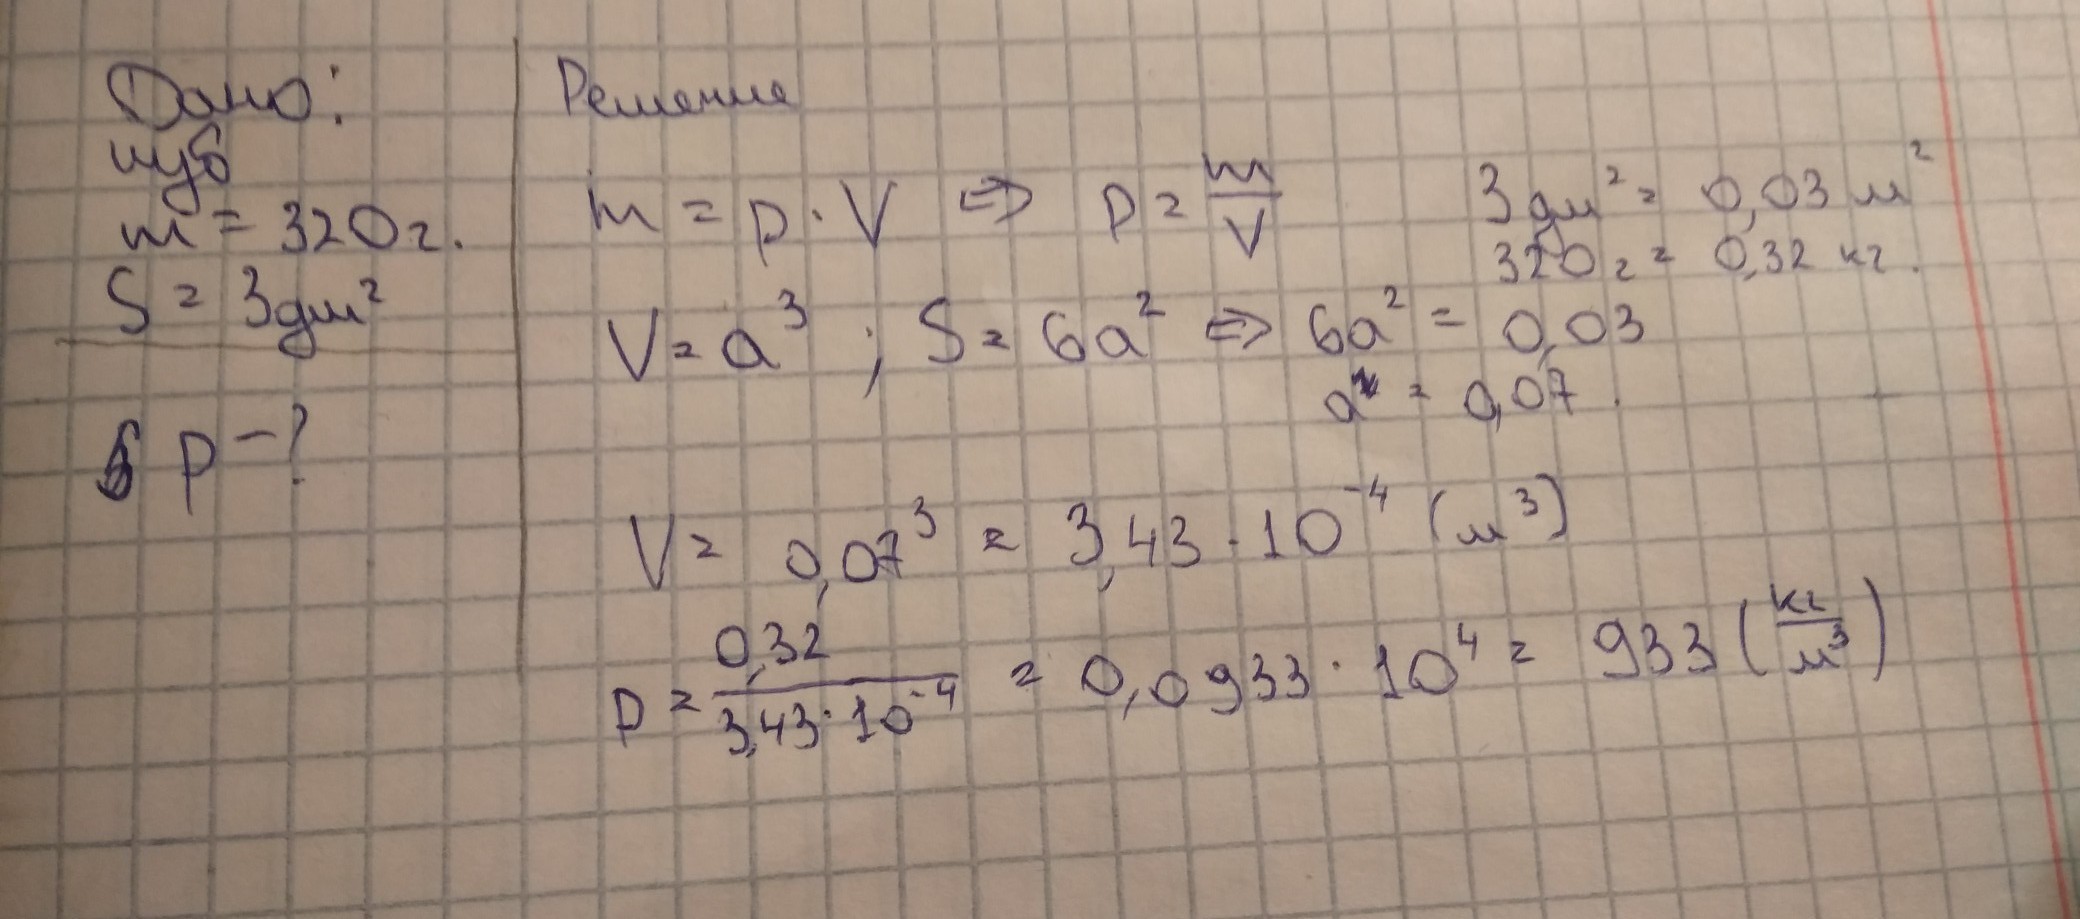 Дано:
куб
m = 320 г.
S = 3дм²
ρ - ?
Решение
m = ρ · V ⇔ ρ = m/V
3 дм² = 0,03 м²
320 г = 0,32 кг.
V = a³ ; S = 6a² ⇔ 6a² = 0,03
a = 0,07.
V = 0,07³ = 3,43 · 10⁻⁴ (м³)
ρ = 0,32/3,43·10⁻⁴ = 0,0933 · 10⁴ = 933 (кг/м³)